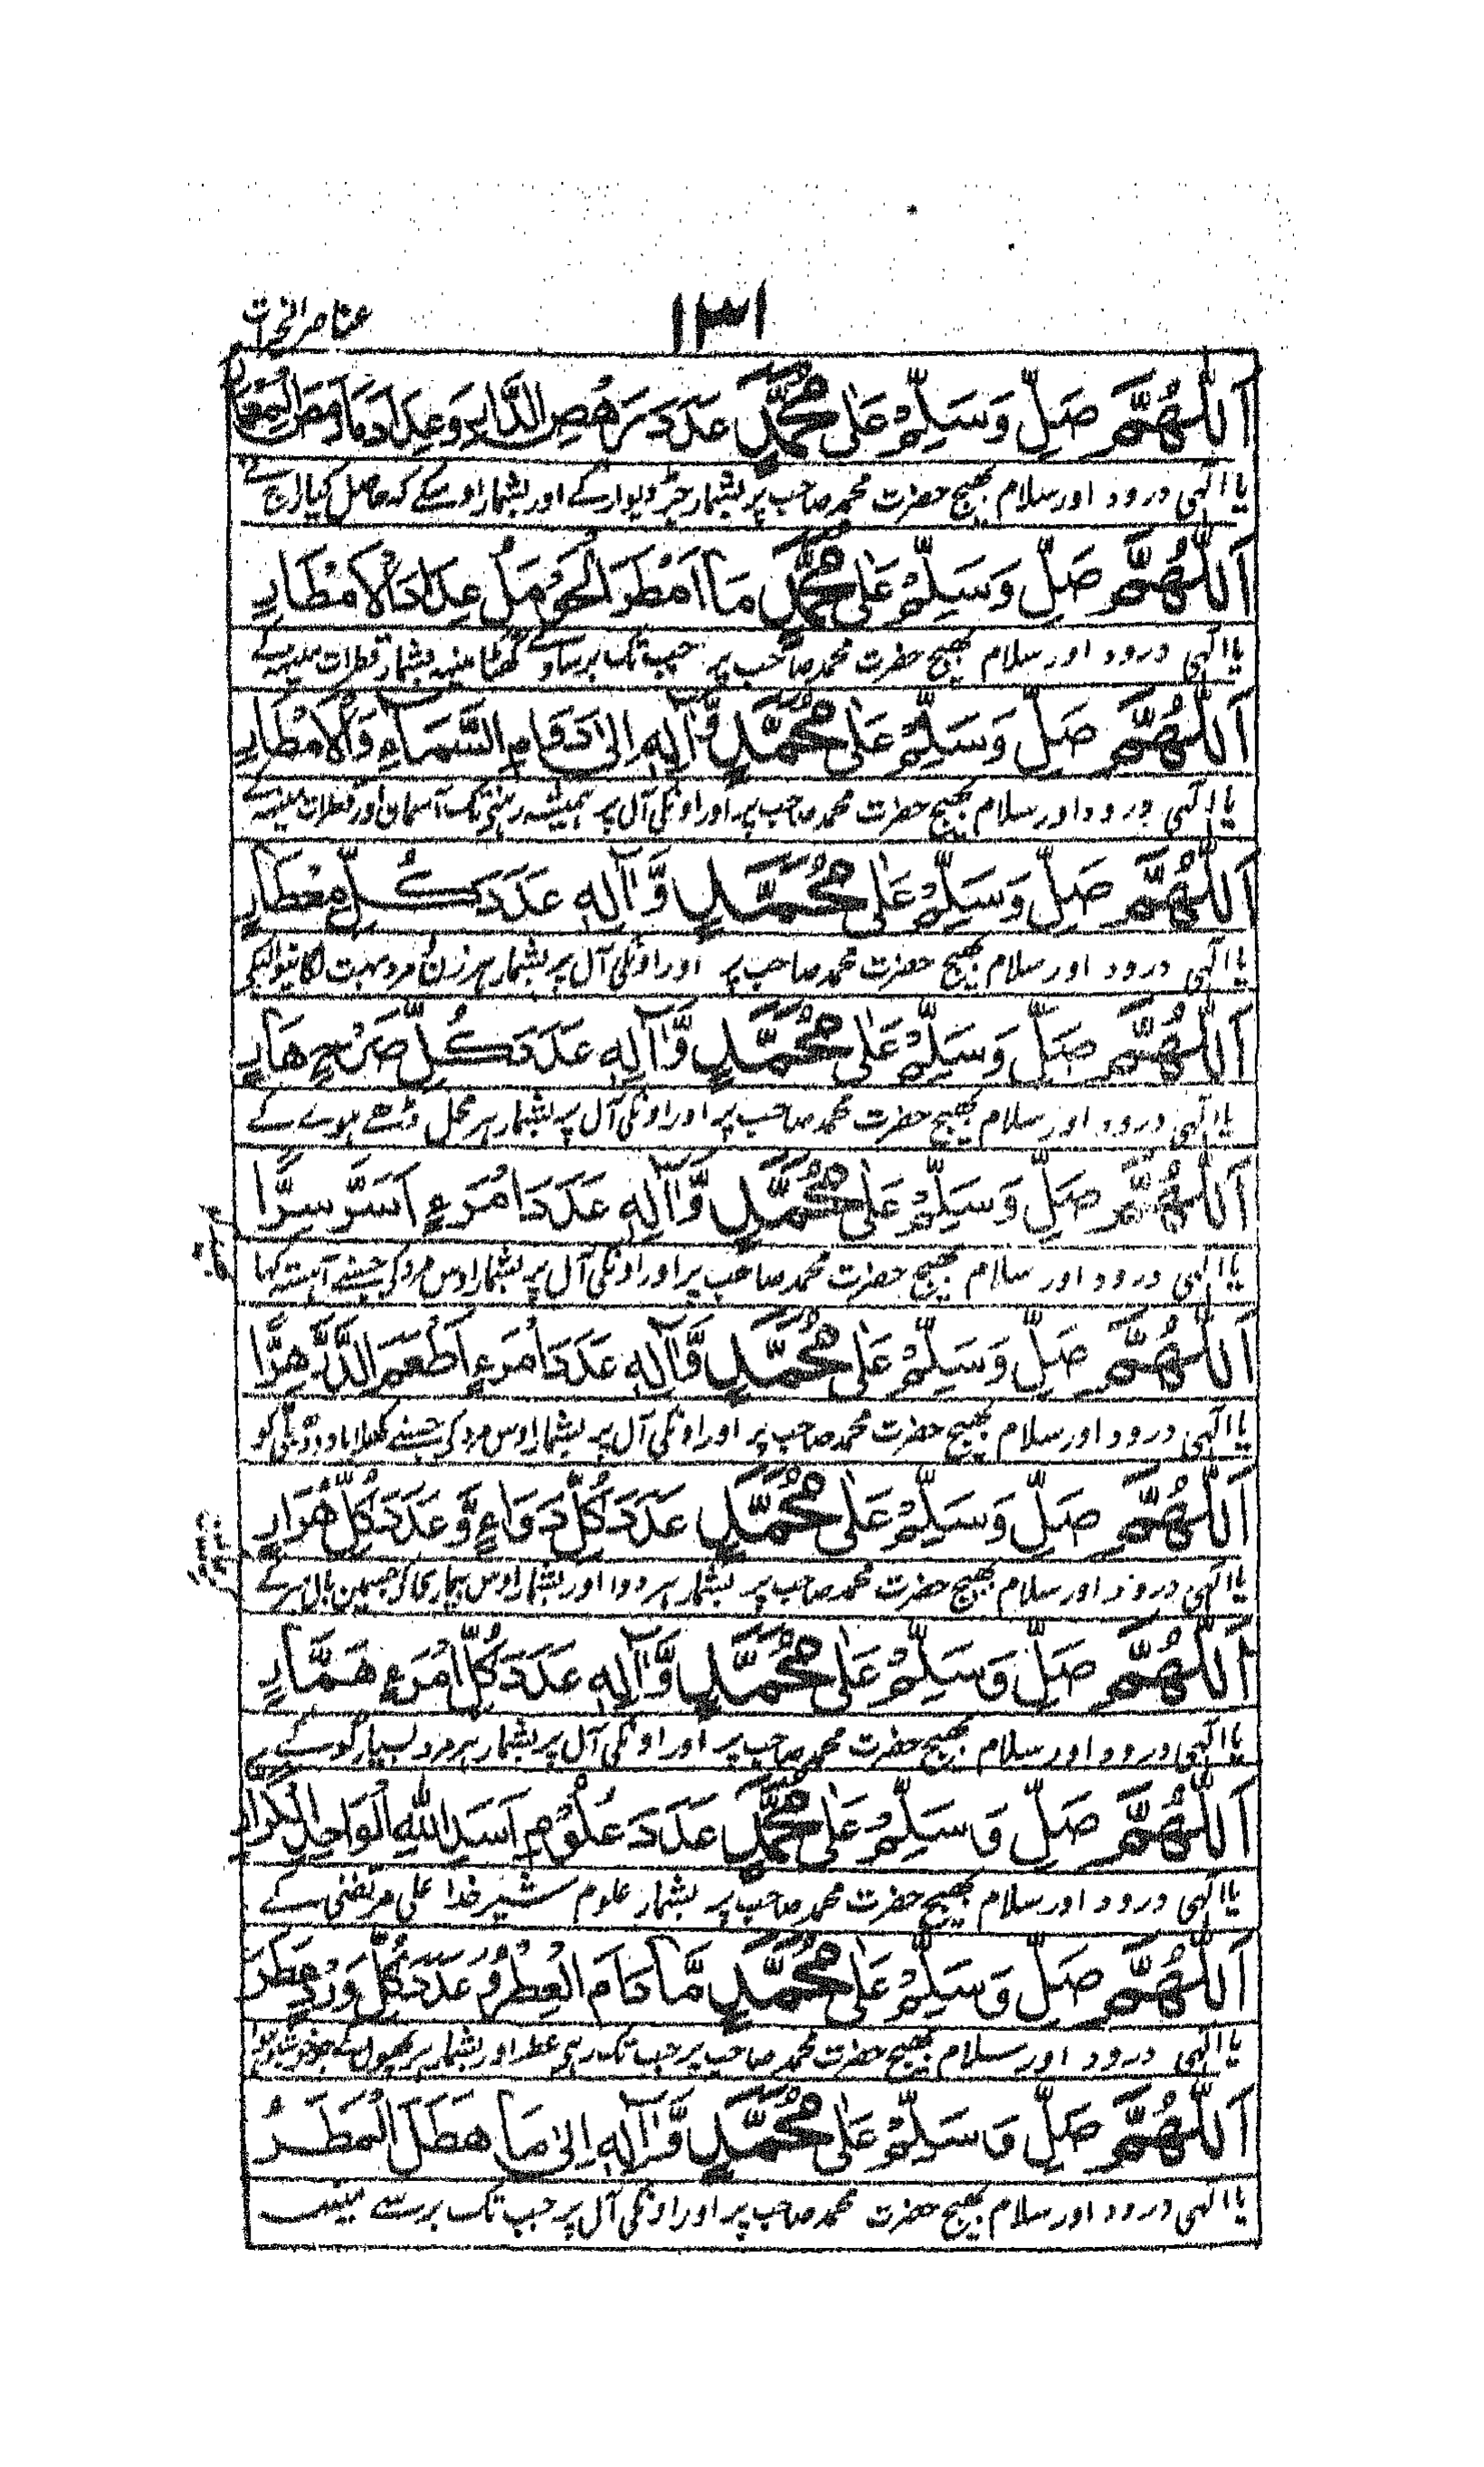 ١٣١
عناصر الخیرات
اَللّٰهُمَّ صَلِّ وَسَلِّمْ عَلٰی مُحَمَّدٍ عَدَدَ رَهْصِ الدَّارِ وَعِدَادَ مَا رَمَصَ الْمِعْمَارُ
یا الٰہی درود اور سلام بھیج حضرت محمد صاحب پر بشمار جڑ دیوار کے اور بشمار اوسکے کہ حاصل کیا راج نے
اَللّٰهُمَّ صَلِّ وَسَلِّمْ عَلٰی مُحَمَّدٍ مَا اَمْطَرَ الْحَوْمَلُ عِدَادَ الْاَمْطَارِ
یا الٰہی درود اور سلام بھیج حضرت محمد صاحب پر جب تک برساوے گھٹا مینہ بشمار قطرات مینہ کے
اَللّٰهُمَّ صَلِّ وَسَلِّمْ عَلٰی مُحَمَّدٍ وَّاٰلِهٖ اِلٰی دَوَامِ السَّمَاءِ وَالْاَمْطَارِ
یا الٰہی درود اور سلام بھیج حضرت محمد صاحب پر اور اونکی آل پر ہمیشہ رہنی تک آسمان اور قطرات مینہ کے
اَللّٰهُمَّ صَلِّ وَسَلِّمْ عَلٰی مُحَمَّدٍ وَّاٰلِهٖ عَدَدَ كُلِّ مِعْطَارٍ
یا الٰہی درود اور سلام بھیج حضرت محمد صاحب پر اور اونکی آل پر بشمار ہر زن و مرد بہت
اَللّٰهُمَّ صَلِّ وَسَلِّمْ عَلٰی مُحَمَّدٍ وَّاٰلِهٖ عَدَدَ كُلِّ صَرْحٍ هَارٍ
یا الٰہی درود اور سلام بھیج حضرت محمد صاحب پر اور اونکی آل پر بشمار ہر محل ڈھے ہوے کے
اَللّٰهُمَّ صَلِّ وَسَلِّمْ عَلٰی مُحَمَّدٍ وَّاٰلِهٖ عَدَدَ امْرَءٍ اَسَرَّ سِرًّا
یا الٰہی درود اور سلام بھیج حضرت محمد صاحب پر اور اونکی آل پر بشمار اوس مرد کی جسنے آہستہ کہا
اَللّٰهُمَّ صَلِّ وَسَلِّمْ عَلٰی مُحَمَّدٍ وَّاٰلِهٖ عَدَدَ امْرَءٍ اَطْعَمَ الدَّرَّ هِرًّا
یا الٰہی درود اور سلام بھیج حضرت محمد صاحب پر اور اونکی آل پر بشمار اوس مرد کی جسنے کھلایا دودھ بلی کو
اَللّٰهُمَّ صَلِّ وَسَلِّمْ عَلٰی مُحَمَّدٍ عَدَدَ كُلِّ دَوَاءٍ وَّعَدَدَ كُلِّ هُرَارٍ
یا الٰہی درود اور سلام بھیج حضرت محمد صاحب پر بشمار ہر دوا اور بشمار اوس بیماری کی جسمین
اَللّٰهُمَّ صَلِّ وَسَلِّمْ عَلٰی مُحَمَّدٍ وَّاٰلِهٖ عَدَدَ كُلِّ امْرَءٍ هَمَّارٍ
یا الٰہی درود اور سلام بھیج حضرت محمد صاحب پر اور اونکی آل پر بشمار ہر مرد بسیار گو کے
اَللّٰهُمَّ صَلِّ وَسَلِّمْ عَلٰی مُحَمَّدٍ عَدَدَ عُلُوْمِ اَسَدِ اللّٰهِ الْوَاحِدِ الْكَرَّارِ
یا الٰہی درود اور سلام بھیج حضرت محمد صاحب پر بشمار علوم شیر خدا علی مرتضیٰ کے
اَللّٰهُمَّ صَلِّ وَسَلِّمْ عَلٰی مُحَمَّدٍ مَّا دَامَ الْعِطْرُ وَعَدَدَ كُلِّ وَرْدٍ عَطِرَ
یا الٰہی درود اور سلام بھیج حضرت محمد صاحب پر جب تک رہی عطر اور بشمار ہر پھول کے
اَللّٰهُمَّ صَلِّ وَسَلِّمْ عَلٰی مُحَمَّدٍ وَّاٰلِهٖ اِلٰی مَا هَطَلَ الْمَطَرُ
یا الٰہی درود اور سلام بھیج حضرت محمد صاحب پر اور اونکی آل پر جب تک برسے مینہ